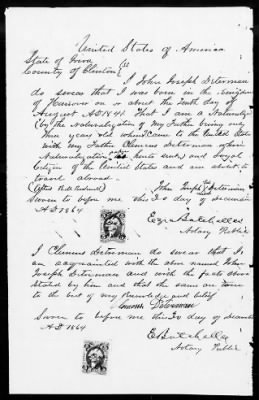 United States of America
State of Iowa
County of Clinton } ss
I John Joseph Determan
do swear that I was born in the Kingdom
of Hanover on or about the tenth day of
August AD 1841 That I am a Naturalized
(by the naturalization of my Father being only
years old when I came to the United States
with my Father Clemens Determan whose
Naturalization hereto and loyal
Citizen of the United States and am about to
travel abroad
John Joseph Determan
Sworn to before me this 30 day of December
AD 1864
Notary Public
I Clemens Determan do swear that I
am acquainted with the above named John
Joseph Determan and with the facts above
stated by him and that the same are true
to the best of my knowledge and belief
Clemens Determan
Sworn to before me this 30 day of December
AD 1864
Notary Public